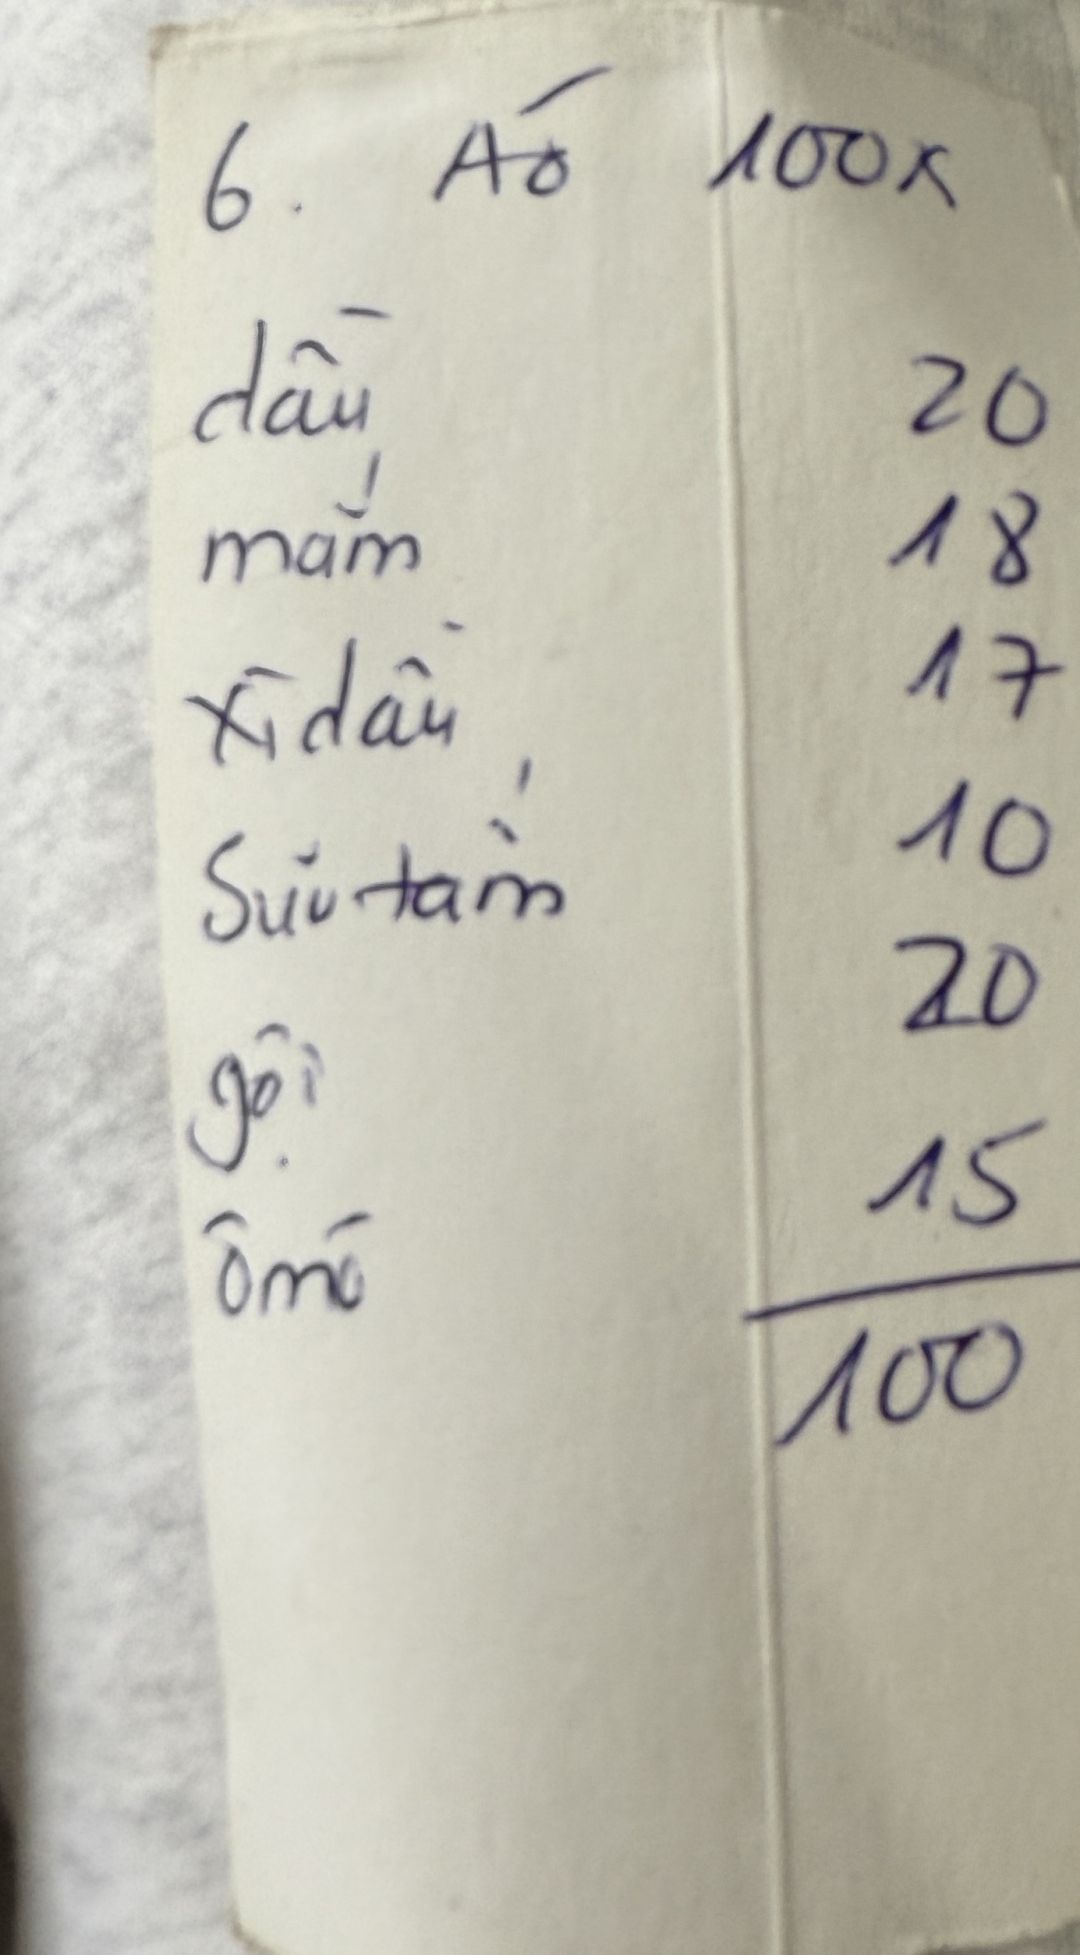 6. Áo 100k
dầu 20
mắm 18
xì dầu 17
Sữu tắm 10
gội 20
ômô 15
100